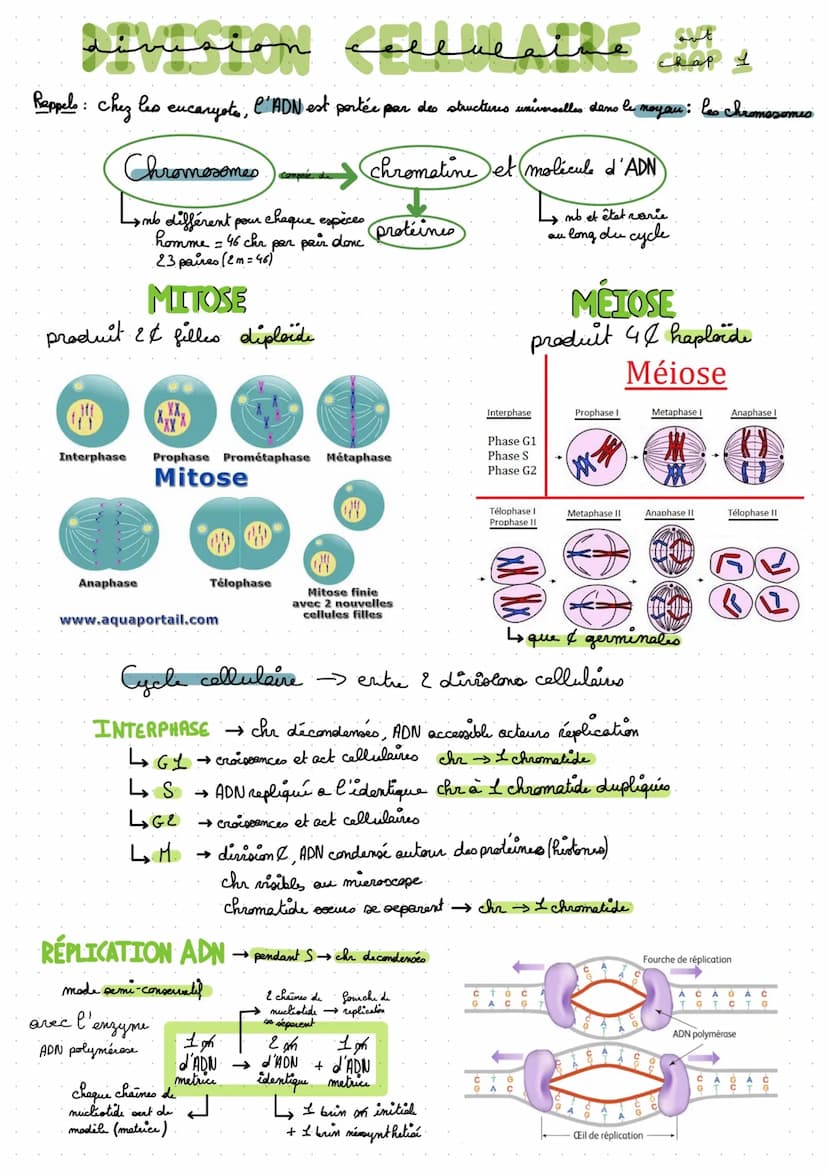 DIVISION CELLULAIRE
division cellulaire
SVT
chap 1
Rappels : chez les eucaryotes, l'ADN est portée par des structures universelles dans le noyau : les chromosomes
Chromosomes composé de chromatine et molécule d'ADN
protéines
↳ nb différent pour chaque espèces
homme = 46 chr par pair donc
23 paires (2n = 46)
↳ nb et état varie
au long du cycle
MITOSE
produit 2 ₵ filles diploïde
Interphase Prophase Prométaphase Métaphase
Mitose
Anaphase Télophase
Mitose finie
avec 2 nouvelles
cellules filles
www.aquaportail.com
MÉIOSE
produit 4 ₵ haploïde
Méiose
Interphase Prophase I Metaphase I Anaphase I
Phase G1
Phase S
Phase G2
Télophase I
Prophase II
Metaphase II Anaphase II Télophase II
↳ que ₵ germinales
Cycle cellulaire → entre 2 divisions cellulaires
INTERPHASE → chr décondensés, ADN accessible acteurs réplication
↳ G1 → croissances et act cellulaires chr → 1 chromatide
↳ S → ADN repliqué a l'identique chr à 1 chromatide dupliqués
↳ G2 → croissances et act cellulaires
↳ M → division ₵, ADN condensé autour des protéines (histones)
chr visibles au microscope
Chromatide sœurs se separent → chr → 1 chromatide
RÉPLICATION ADN → pendant S → chr decondensés
mode semi-conservatif
avec l'enzyme
ADN polymérase
2 chaînes de
nucleotide → fourche de
se séparent réplication
1 m
d'ADN
matrice
→
2 m
d'ADN
identique
+
1 m
d'ADN
matrice
chaque chaînes de
nucléotide sert de
modèle (matrice)
↳ 1 brin m initial
+ 1 brin néosynthétisé
Fourche de réplication
C A T C
G T A G
C T G C A
G A C G T
A C A G A C
T G T C T G
ADN polymérase
C T G
G A C
C A G A C
G T C T G
Œil de réplication